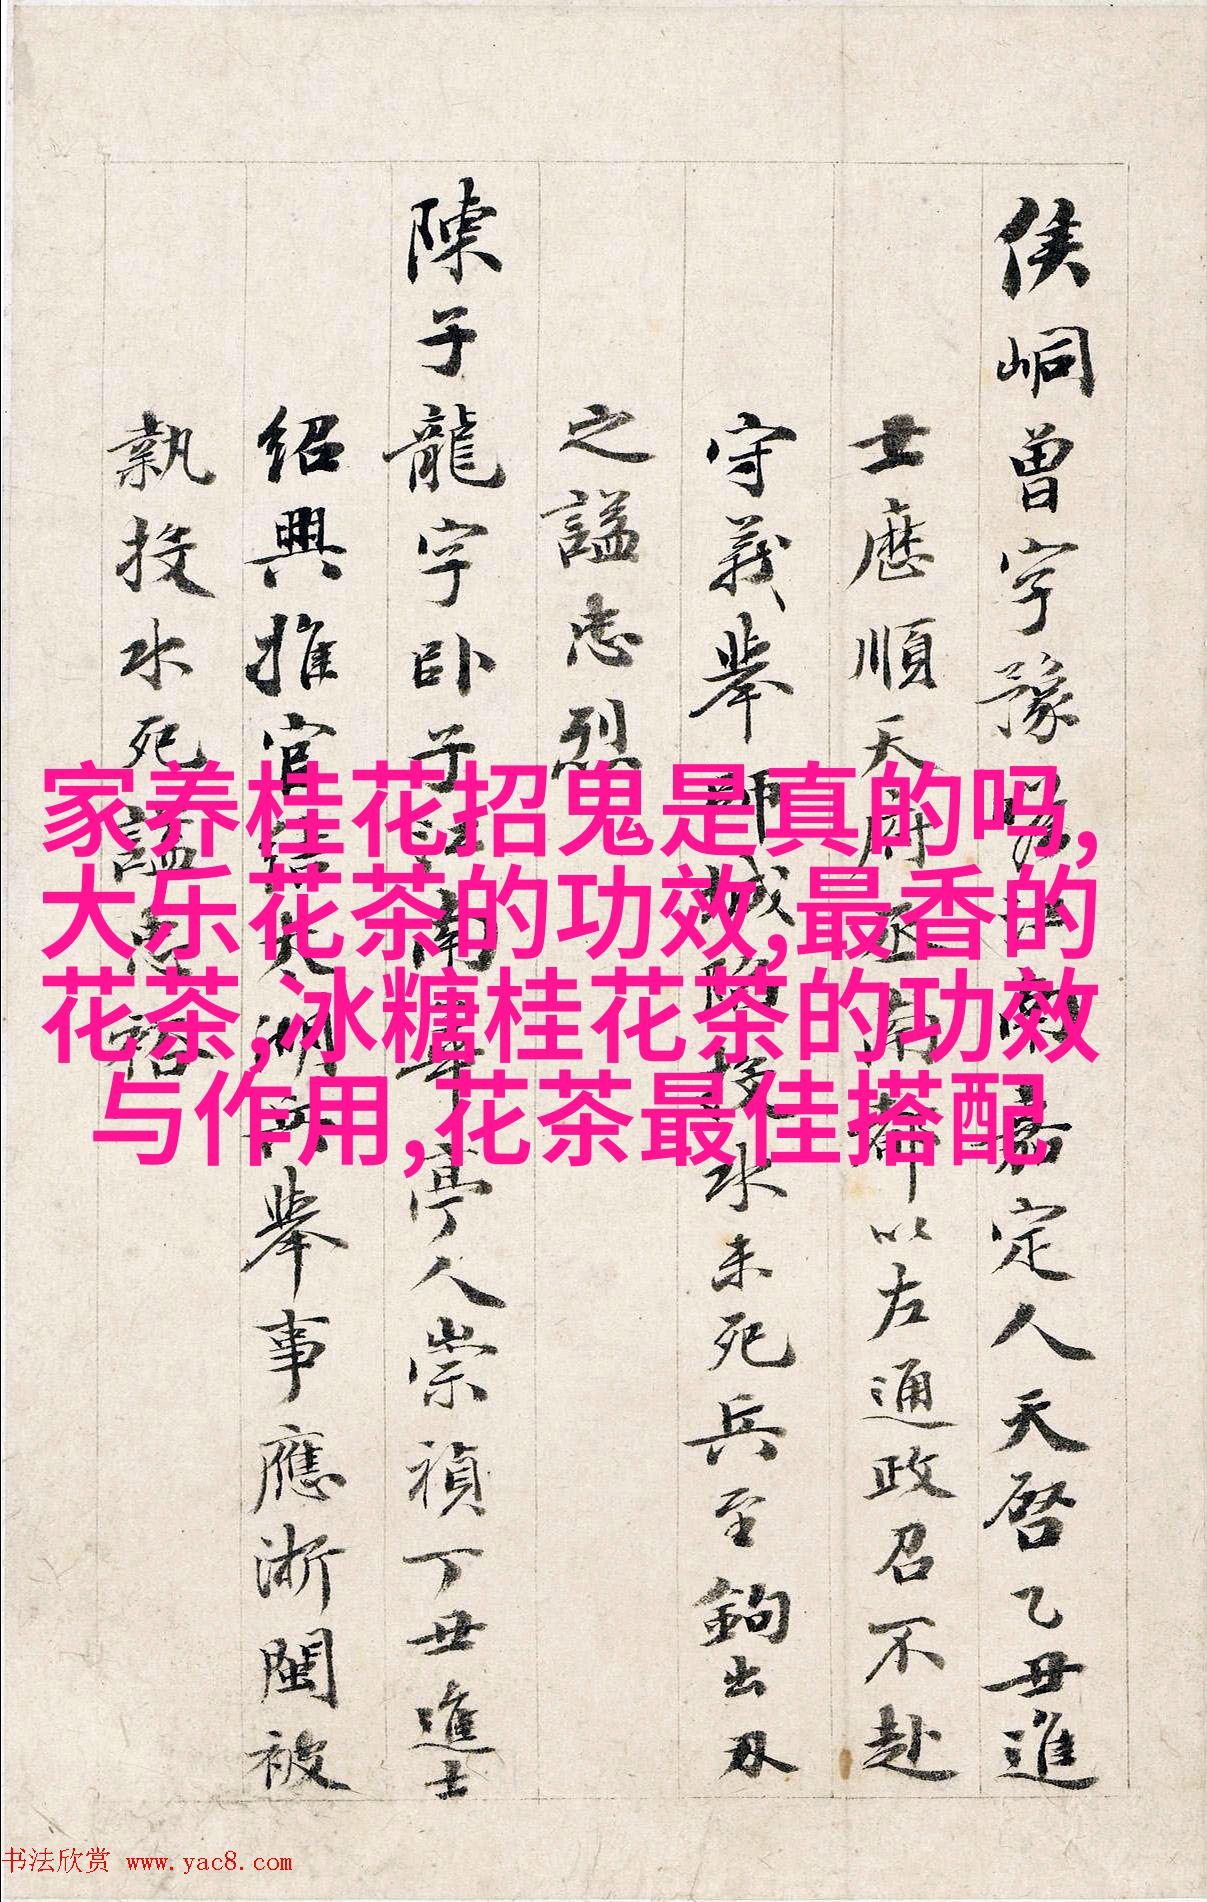 侯峒曾字豫
定人天启乙丑進
士歷順天
以左通政召不赴
守義舉
水未死兵至鉤出刃
之謚忠烈
陳子龍字卧子
南
亭人崇禎丁丑進士
紹興推官
湖
舉事應浙閩被
執投水死謚忠裕
家养桂花招鬼是真的吗,
大乐花茶的功效,最香的
花茶,冰糖桂花茶的功效
与作用,花茶最佳搭配
书法欣赏 www.yac8.com